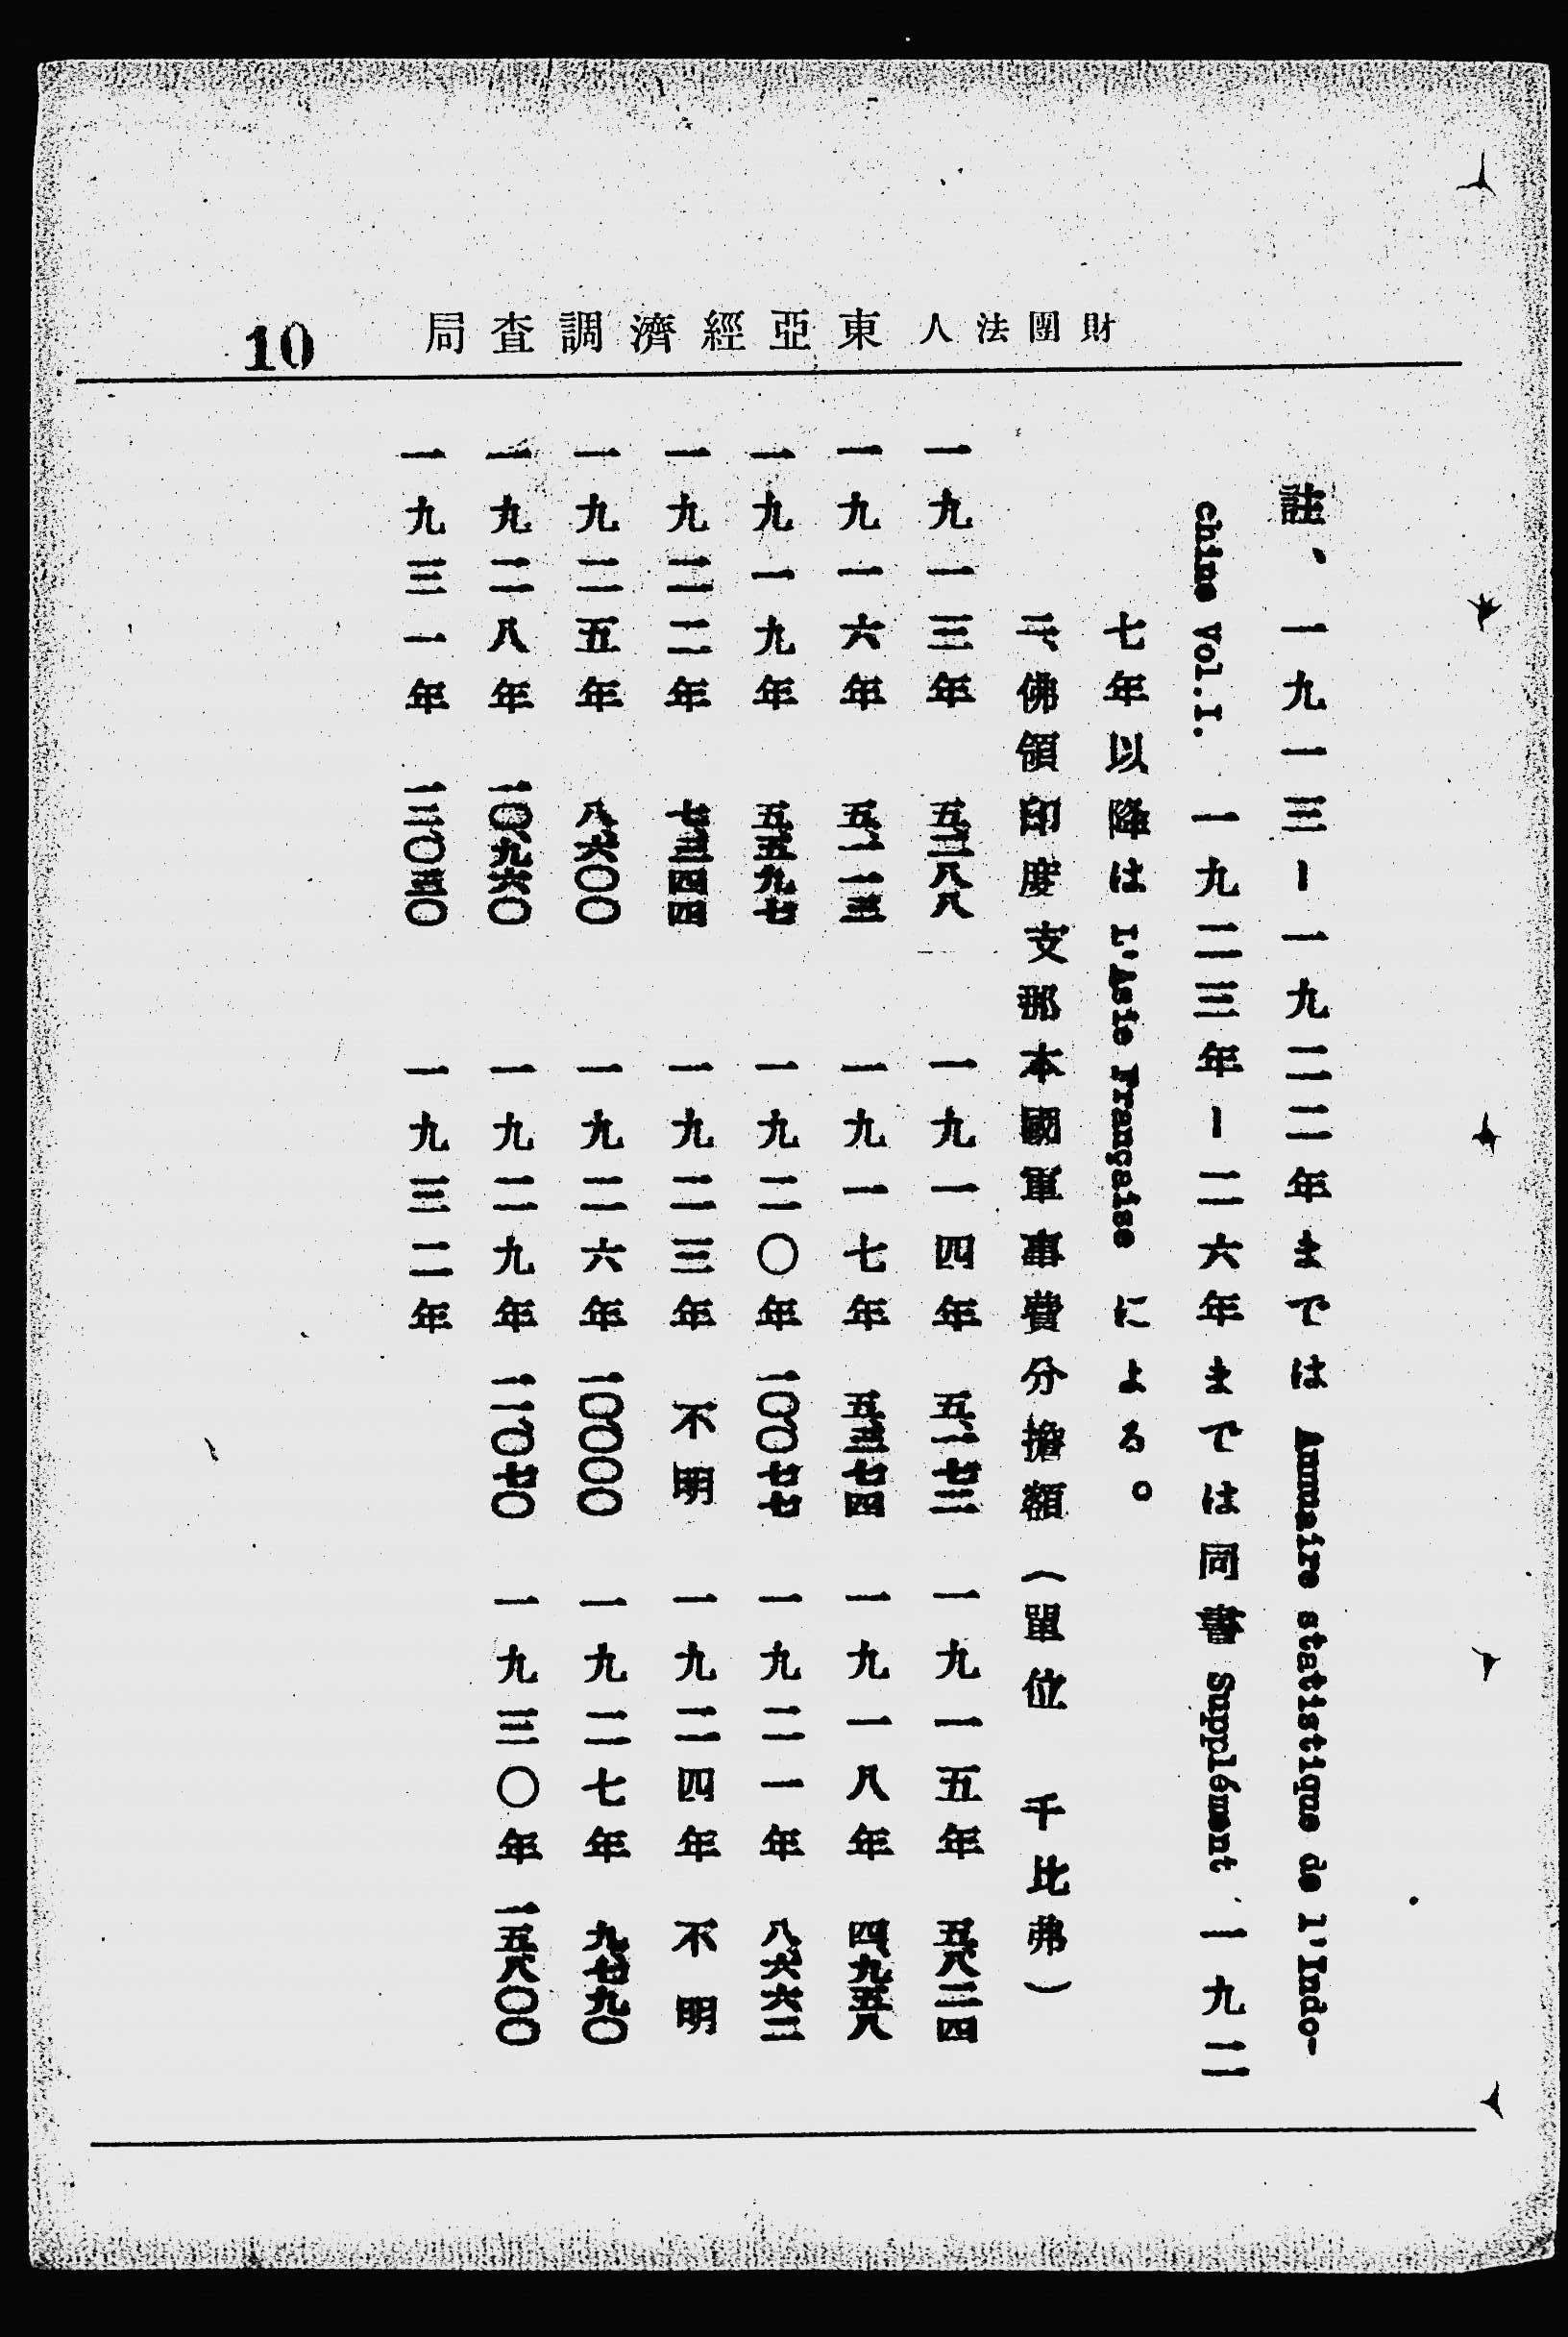 財團法人東亞經濟調査局
10
註、一九一三ー一九二二年までは Annuaire statistique de l'Indo-
chine Vol.I. 一九二三年ー二六年までは同書 Supplément、一九二
七年以降は L'Asie Française による。
二、佛領印度支那本國軍事費分擔額（單位 千比弗）
一九一三年 五、二八八 一九一四年 五、一七三 一九一五年 五、八二四
一九一六年 五、一一三 一九一七年 五、三七四 一九一八年 四、九五八
一九一九年 五、五九七 一九二〇年 一〇、〇七七 一九二一年 八、六六二
一九二二年 七、三四四 一九二三年 不明 一九二四年 不明
一九二五年 八、六〇〇 一九二六年 一〇、〇〇〇 一九二七年 九、七九〇
一九二八年 一〇、九六〇 一九二九年 一一、〇七〇 一九三〇年 一五、八〇〇
一九三一年 一三、〇五〇 一九三二年